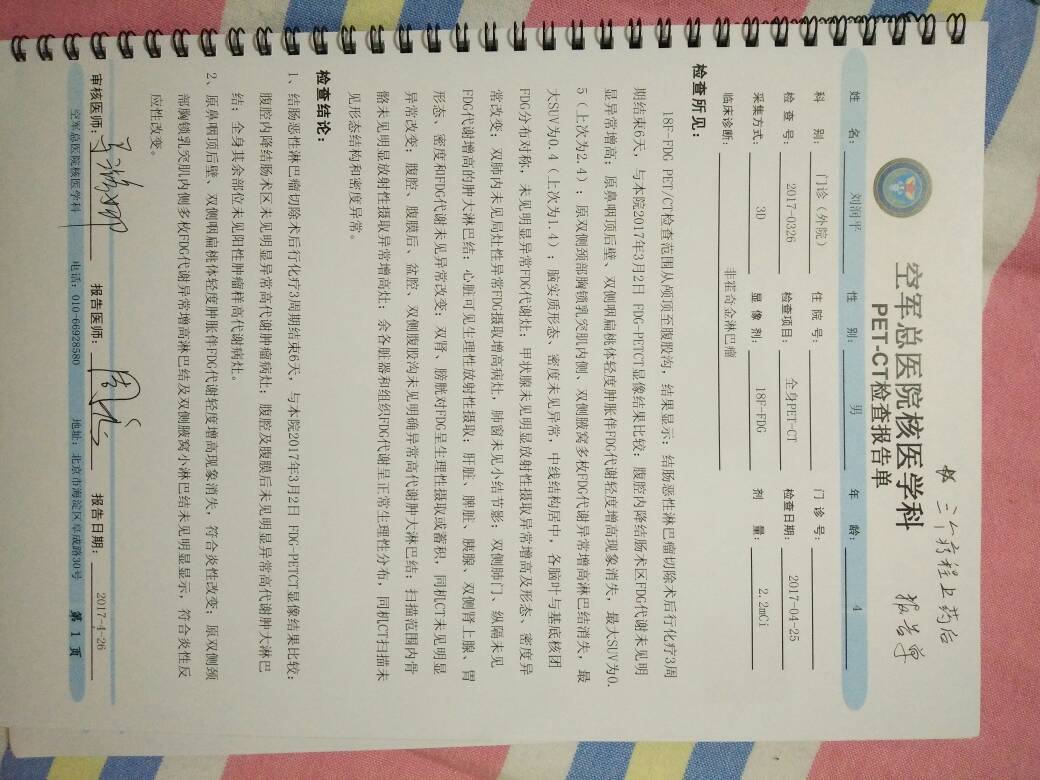 三个疗程上药后
报告单
空军总医院核医学科
PET-CT检查报告单
姓 名: 刘润平 性 别: 男 年 龄: 4
科 别: 门诊（外院） 住 院 号: 门 诊 号:
检 查 号: 2017-0326 检查项目: 全身PET-CT 检查日期: 2017-04-25
采集方式: 3D 显 像 剂: 18F-FDG 剂 量: 2.2mCi
临床诊断: 非霍奇金淋巴瘤
检查所见:
18F-FDG PET/CT检查范围从颅顶至腹股沟，结果显示：结肠恶性淋巴瘤切除术后行化疗3周
期结束6天，与本院2017年3月2日 FDG-PETCT显像结果比较：腹腔内降结肠术区FDG代谢未见明
显异常增高；原鼻咽顶后壁、双侧咽扁桃体轻度肿胀伴FDG代谢轻度增高现象消失，最大SUV为0.
5（上次为2.4）；原双侧颈部胸锁乳突肌内侧、双侧腋窝多枚FDG代谢异常增高淋巴结消失，最
大SUV为0.4（上次为1.4）；脑实质形态、密度未见异常，中线结构居中，各脑叶与基底核团
FDG分布对称，未见明显异常FDG代谢灶；甲状腺未见明显放射性摄取异常增高及形态、密度异
常改变；双肺内未见局灶性异常FDG摄取增高病灶，肺窗未见小结节影；双侧肺门、纵隔未见
FDG代谢增高的肿大淋巴结；心脏可见生理性放射性摄取；肝脏、脾脏、胰腺、双侧肾上腺、胃
形态、密度和FDG代谢未见异常改变；双肾、膀胱对FDG呈生理性摄取或蓄积，同机CT未见明显
异常改变；腹腔、腹膜后、盆腔、双侧腹股沟未见明确异常高代谢肿大淋巴结；扫描范围内骨
骼未见明显放射性摄取异常增高灶；余各脏器和组织FDG代谢呈正常生理性分布，同机CT扫描未
见形态结构和密度异常。
检查结论:
1、结肠恶性淋巴瘤切除术后行化疗3周期结束6天，与本院2017年3月2日 FDG-PETCT显像结果比较：
腹腔内降结肠术区未见明显异常高代谢肿瘤病灶；腹腔及腹膜后未见明显异常高代谢肿大淋巴
结；全身其余部位未见阳性肿瘤样高代谢病灶。
2、原鼻咽顶后壁、双侧咽扁桃体轻度肿胀伴FDG代谢轻度增高现象消失，符合炎性改变；原双侧颈
部胸锁乳突肌内侧多枚FDG代谢异常增高淋巴结及双侧腋窝小淋巴结未见明显显示，符合炎性反
应性改变。
审核医师: 报告医师: 报告日期: 2017-4-26
空军总医院核医学科 电话：010-66928580 地址：北京市海淀区阜成路30号 第 1 页